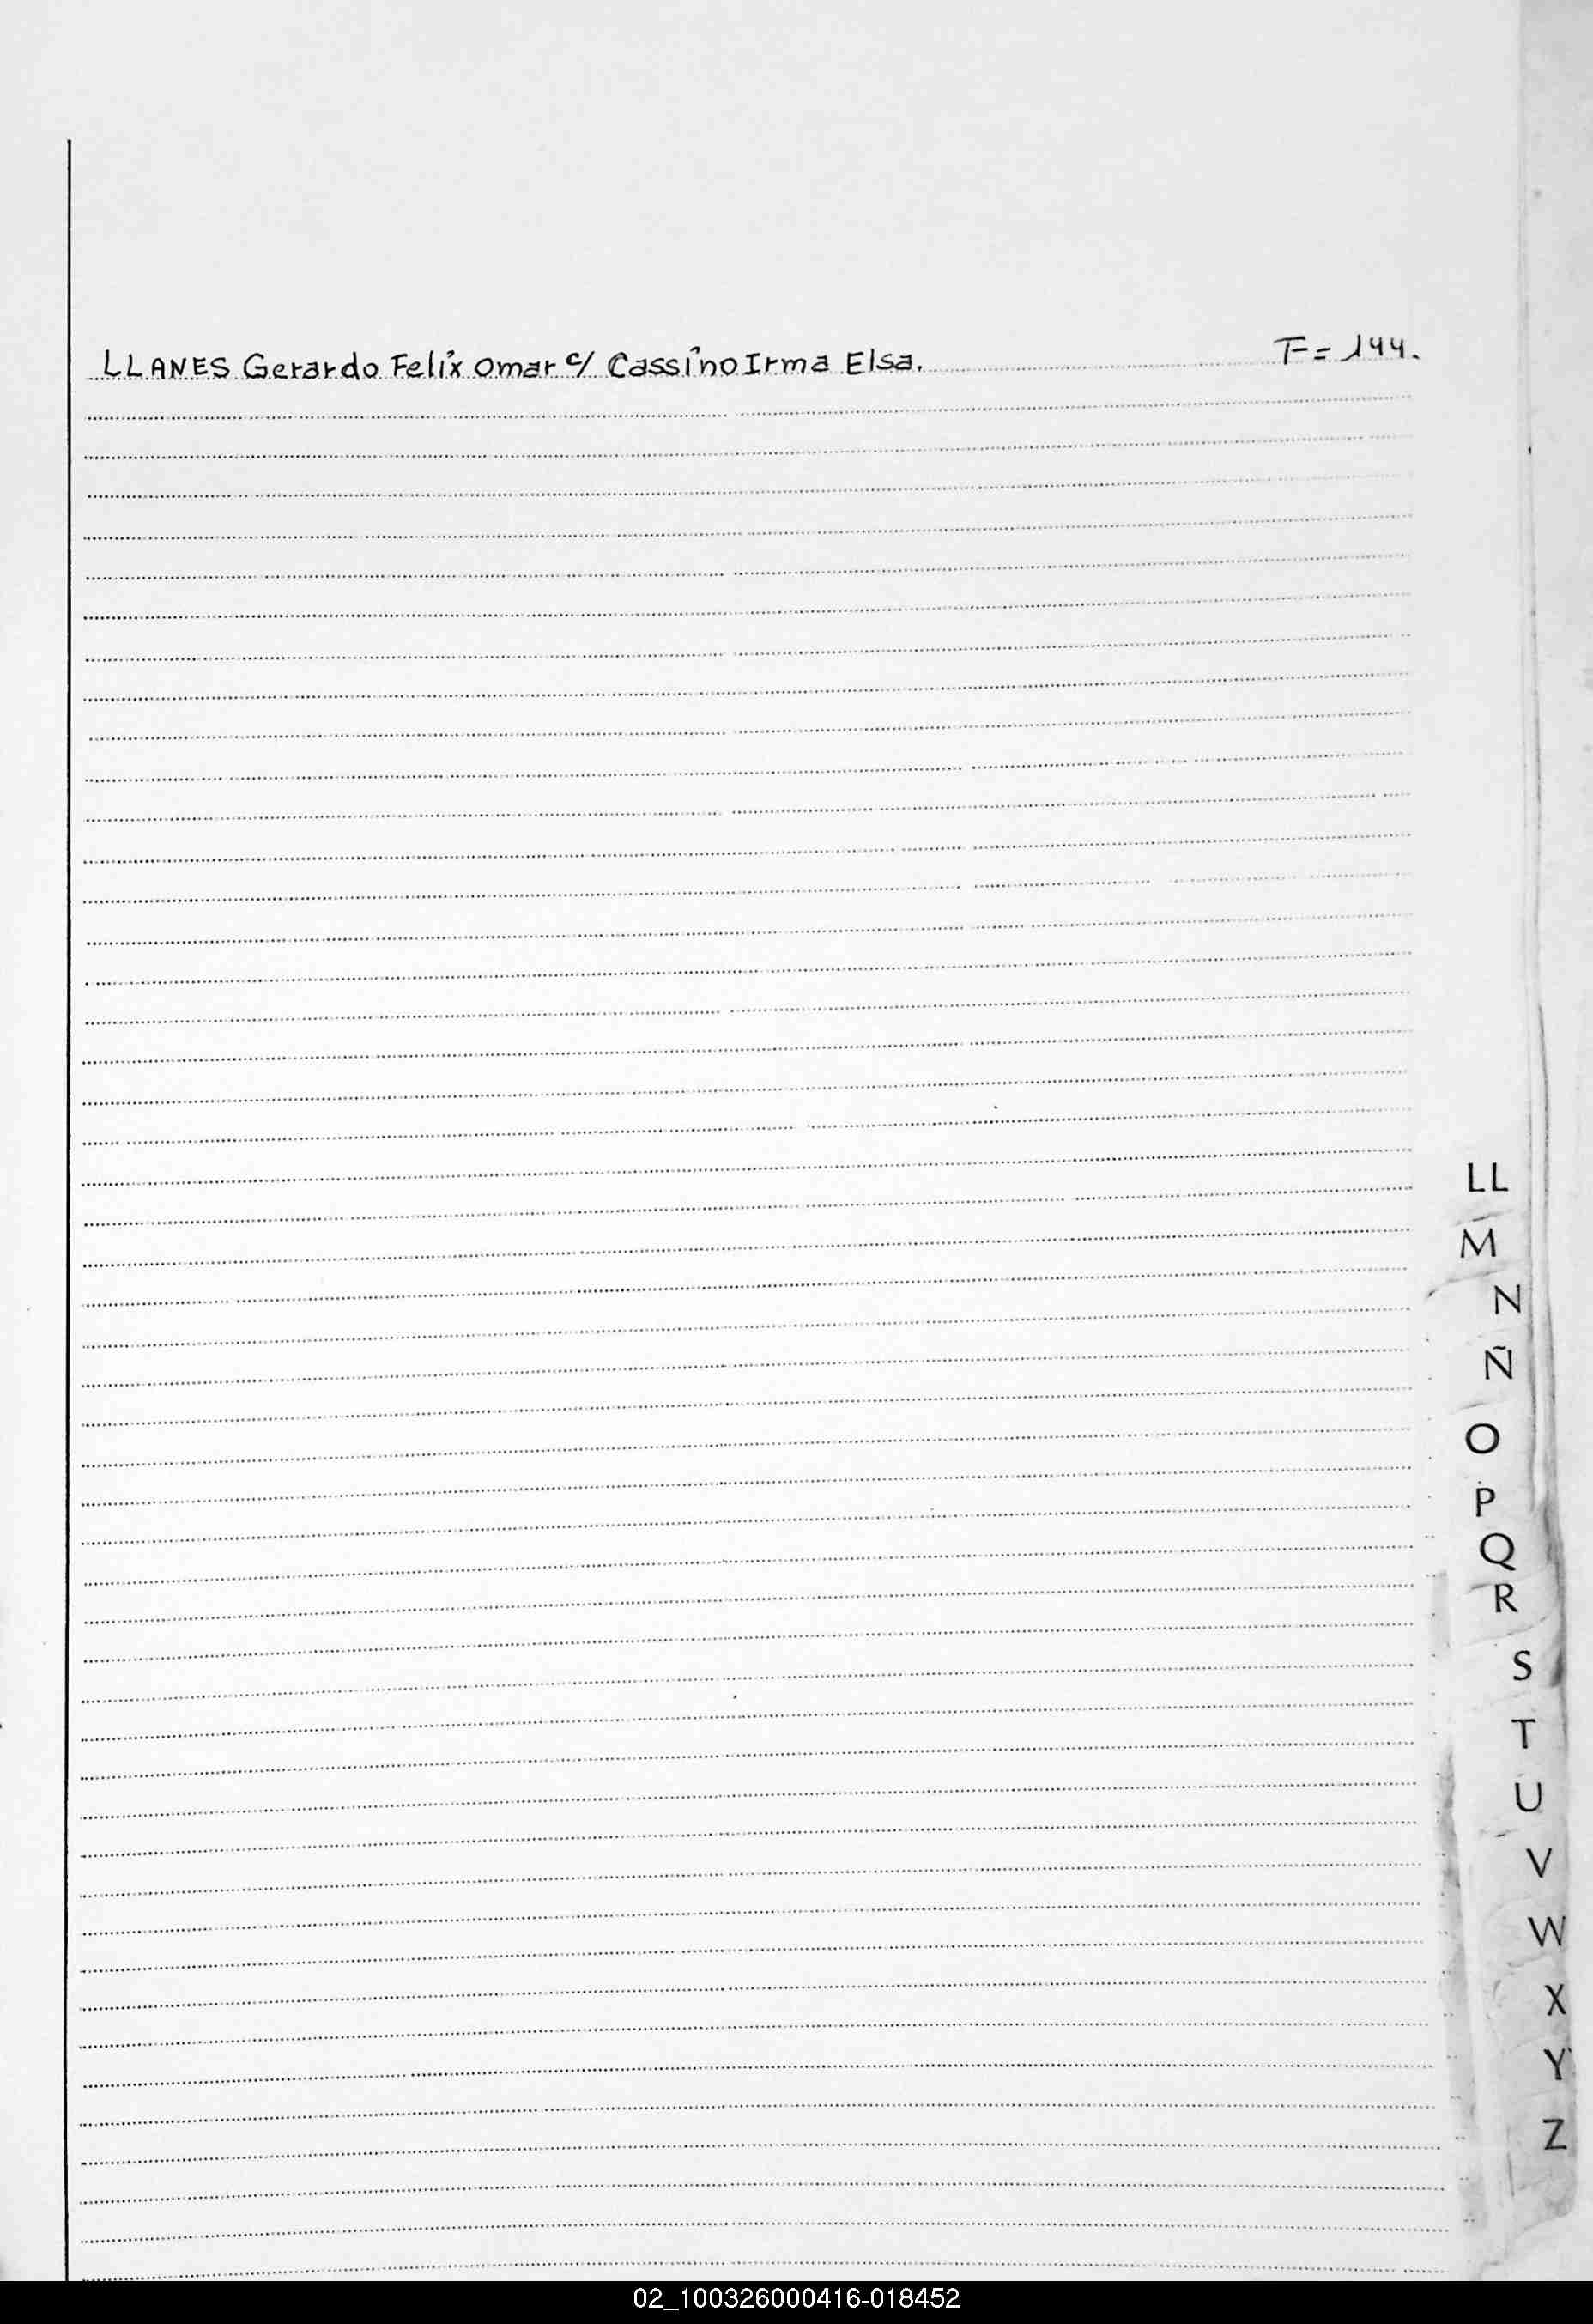 LLANES Gerardo Felix Omar c/ Cassino Irma Elsa. F= 144.
LL
M
N
Ñ
O
P
Q
R
S
T
U
V
W
X
Y
Z
02_100326000416-018452